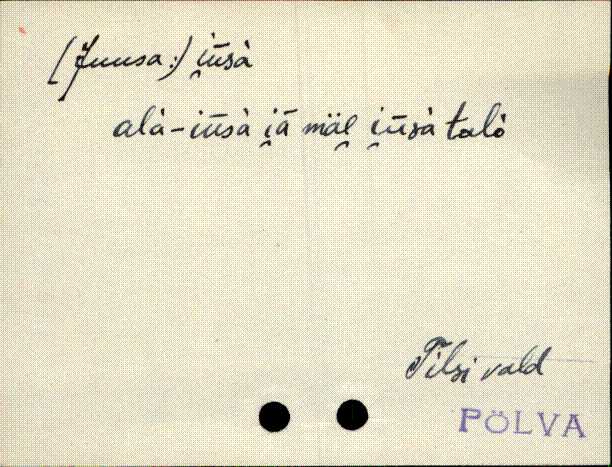 (Juusa:) i̯ūsà
alà-iūsà i̯ā mäe̯ i̯ūsà talò
Tilsi vald
PÕLVA